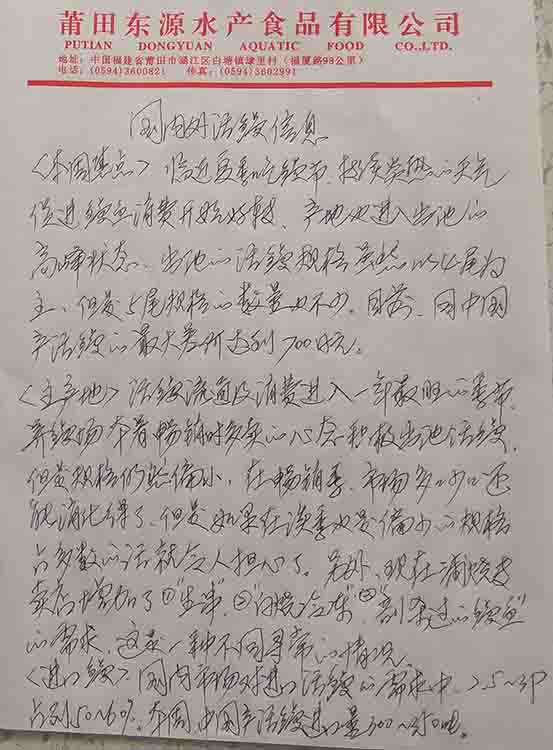 莆田东源水产食品有限公司
PUTIAN DONGYUAN AQUATIC FOOD CO.,LTD.
地址：中国福建省莆田市涵江区白塘镇埭里村（福厦路98公里）
电话：(0594)3600821 传真：(0594)3602991
国内外活鳗信息
〈本周焦点〉临近夏季吃鳗节，持续炎热的天气
促进鳗鱼消费开始好转，产地也进入出池的
高峰状态，出池的活鳗规格虽然以4尾为
主，但是5尾规格的数量也不少。目前，同中国
产活鳗的最大差价达到700日元。
〈主产地〉活鳗流通及消费进入一年最旺的季节，
养鳗场本着畅销时多卖的心态积极出池活鳗，
但是规格仍然偏小，在畅销季，市场多少还
能消化得了，但是如果在淡季也是偏小的规格
占多数的话就令人担心了。另外，现在蒲烧专
卖店增加了①"生冻"，②"白烧冷冻"，③"剖杀过的鳗鱼"
的需求，这是一种不同寻常的情况。
〈进口鳗〉国内市场对进口活鳗的需求中，2.5～3P
占到50～60%，本周，中国产活鳗进口量300～350吨。